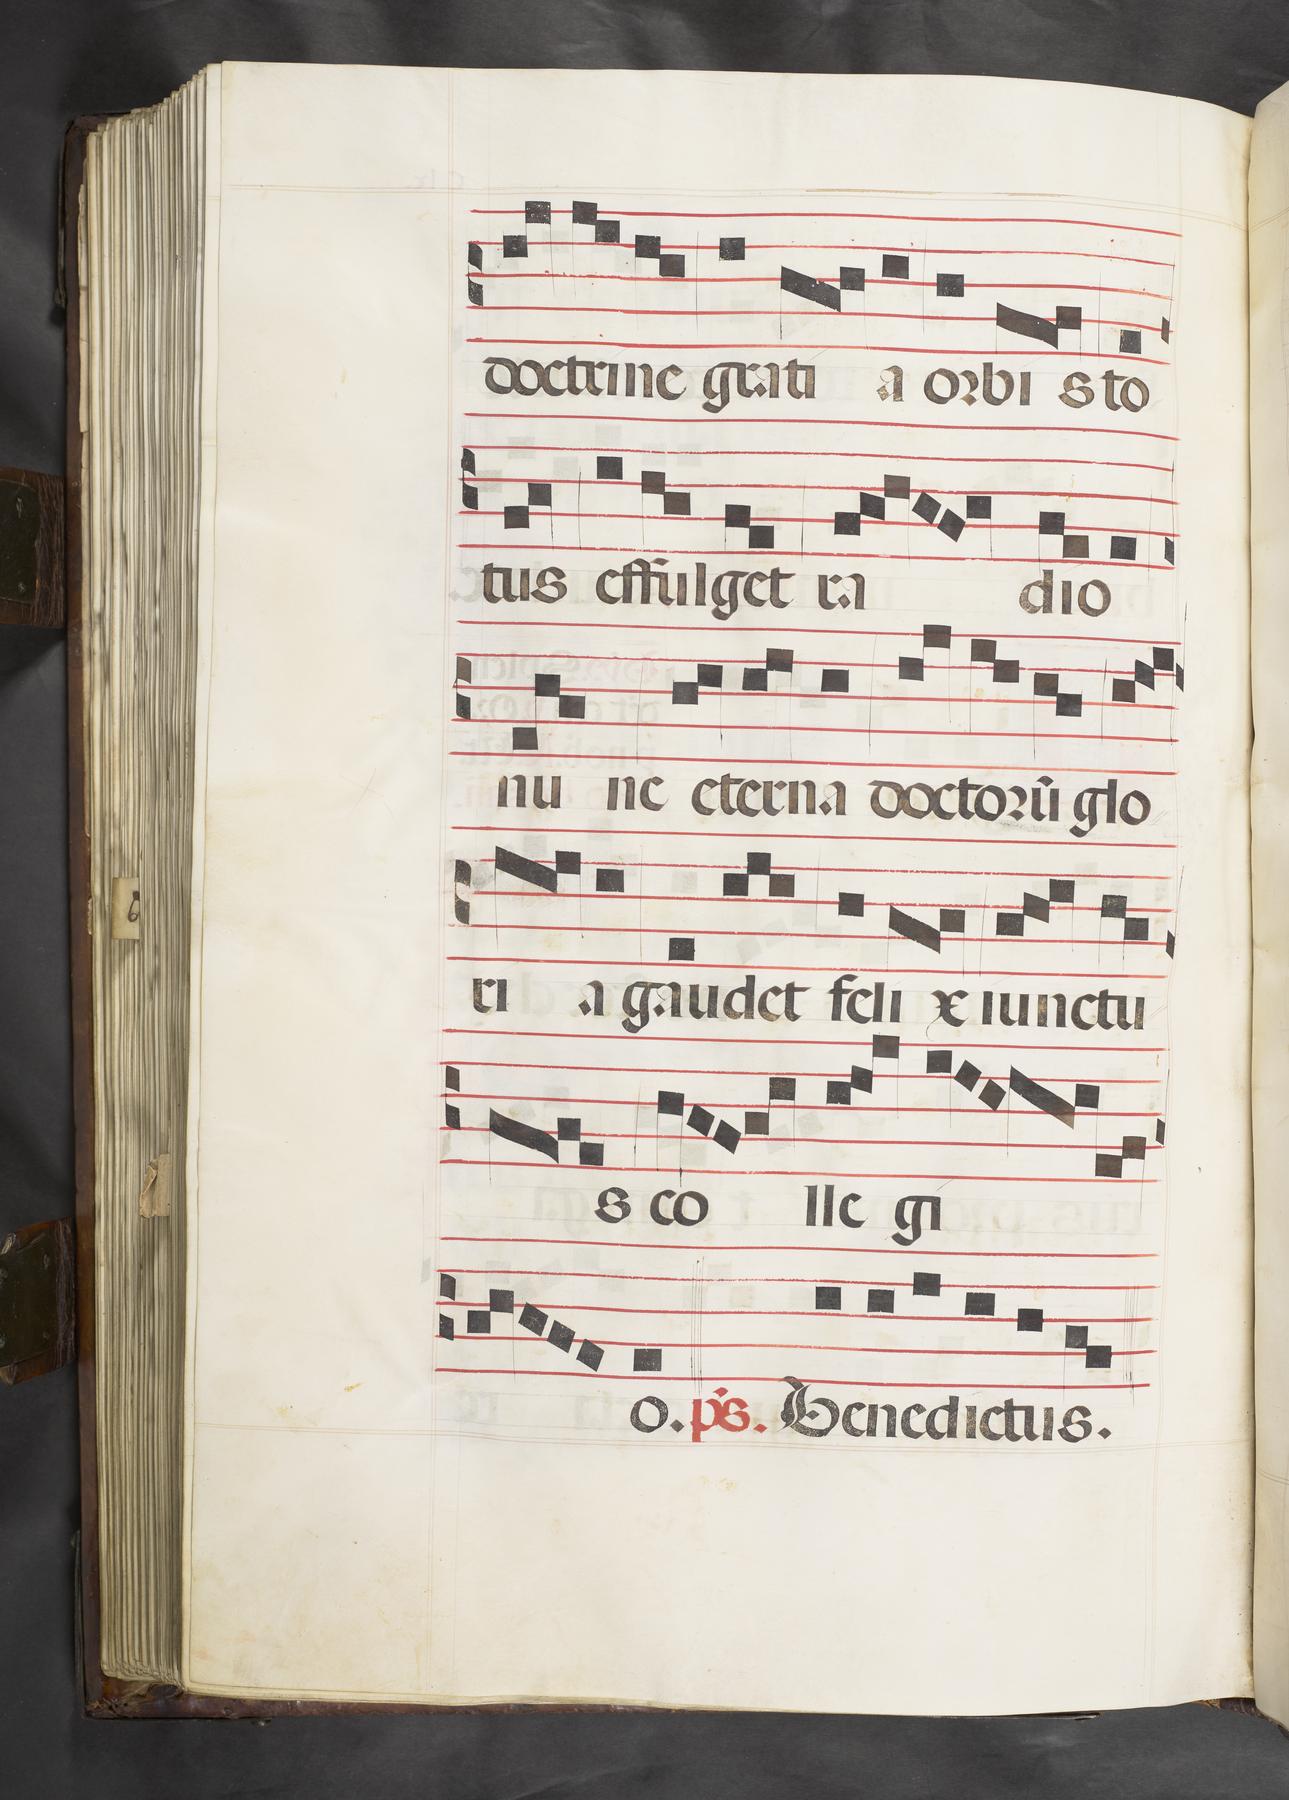 doctrine grati a orbi s to
tus effulget ra dio
nu ne eterna doctorũ glo
ri a gaudet feli x iunctu
s co lle gi
o. p̃s. Benedictus.